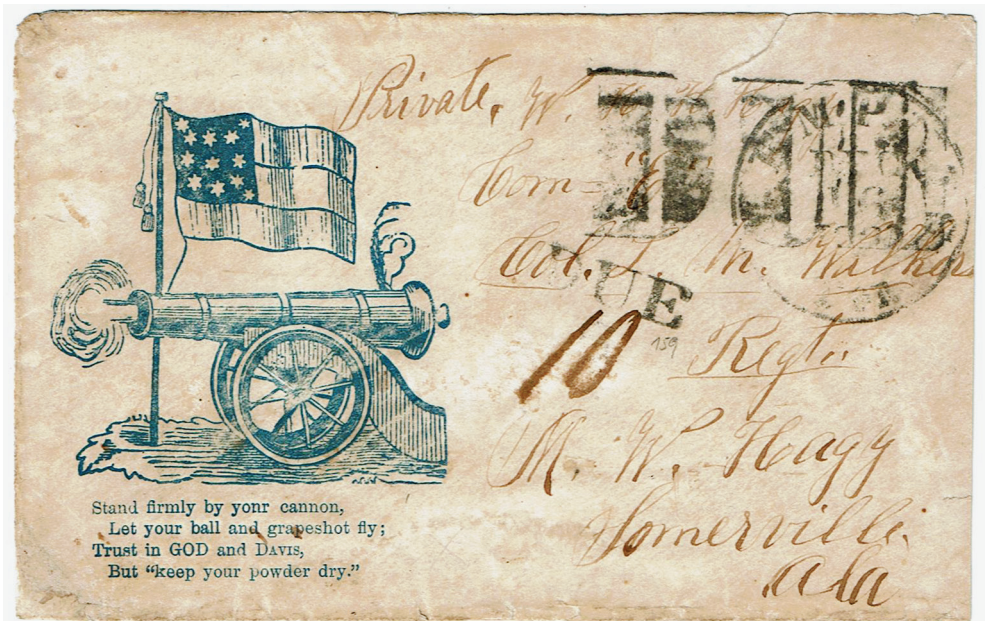 Private, W.
Com=
Col. M. Walkers
DUE
10
159
Regt.
M. W. Hagy
Somerville.
Ala
Stand firmly by yonr cannon,
Let your ball and grapeshot fly;
Trust in GOD and DAVIS,
But “keep your powder dry.”